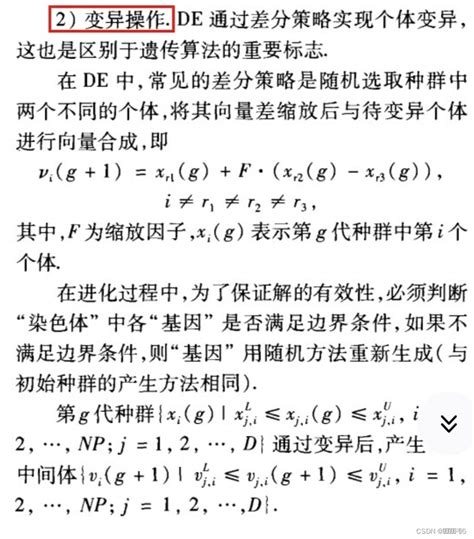 2) 变异操作. DE 通过差分策略实现个体变异,
这也是区别于遗传算法的重要标志.
在 DE 中, 常见的差分策略是随机选取种群中
两个不同的个体, 将其向量差缩放后与待变异个体
进行向量合成, 即
νi(g + 1) = xr1(g) + F · (xr2(g) − xr3(g)),
i ≠ r1 ≠ r2 ≠ r3,
其中, F 为缩放因子, xi(g) 表示第 g 代种群中第 i 个
个体.
在进化过程中, 为了保证解的有效性, 必须判断
“染色体”中各“基因”是否满足边界条件, 如果不
满足边界条件, 则“基因”用随机方法重新生成(与
初始种群的产生方法相同).
第 g 代种群{xi(g) | x^L_j,i ≤ xj,i(g) ≤ x^U_j,i, i
2, ⋯, NP; j = 1, 2, ⋯, D} 通过变异后, 产生
中间体{vi(g + 1) | v^L_j,i ≤ vj,i(g + 1) ≤ v^U_j,i, i = 1,
2, ⋯, NP; j = 1, 2, ⋯, D}.
CSDN